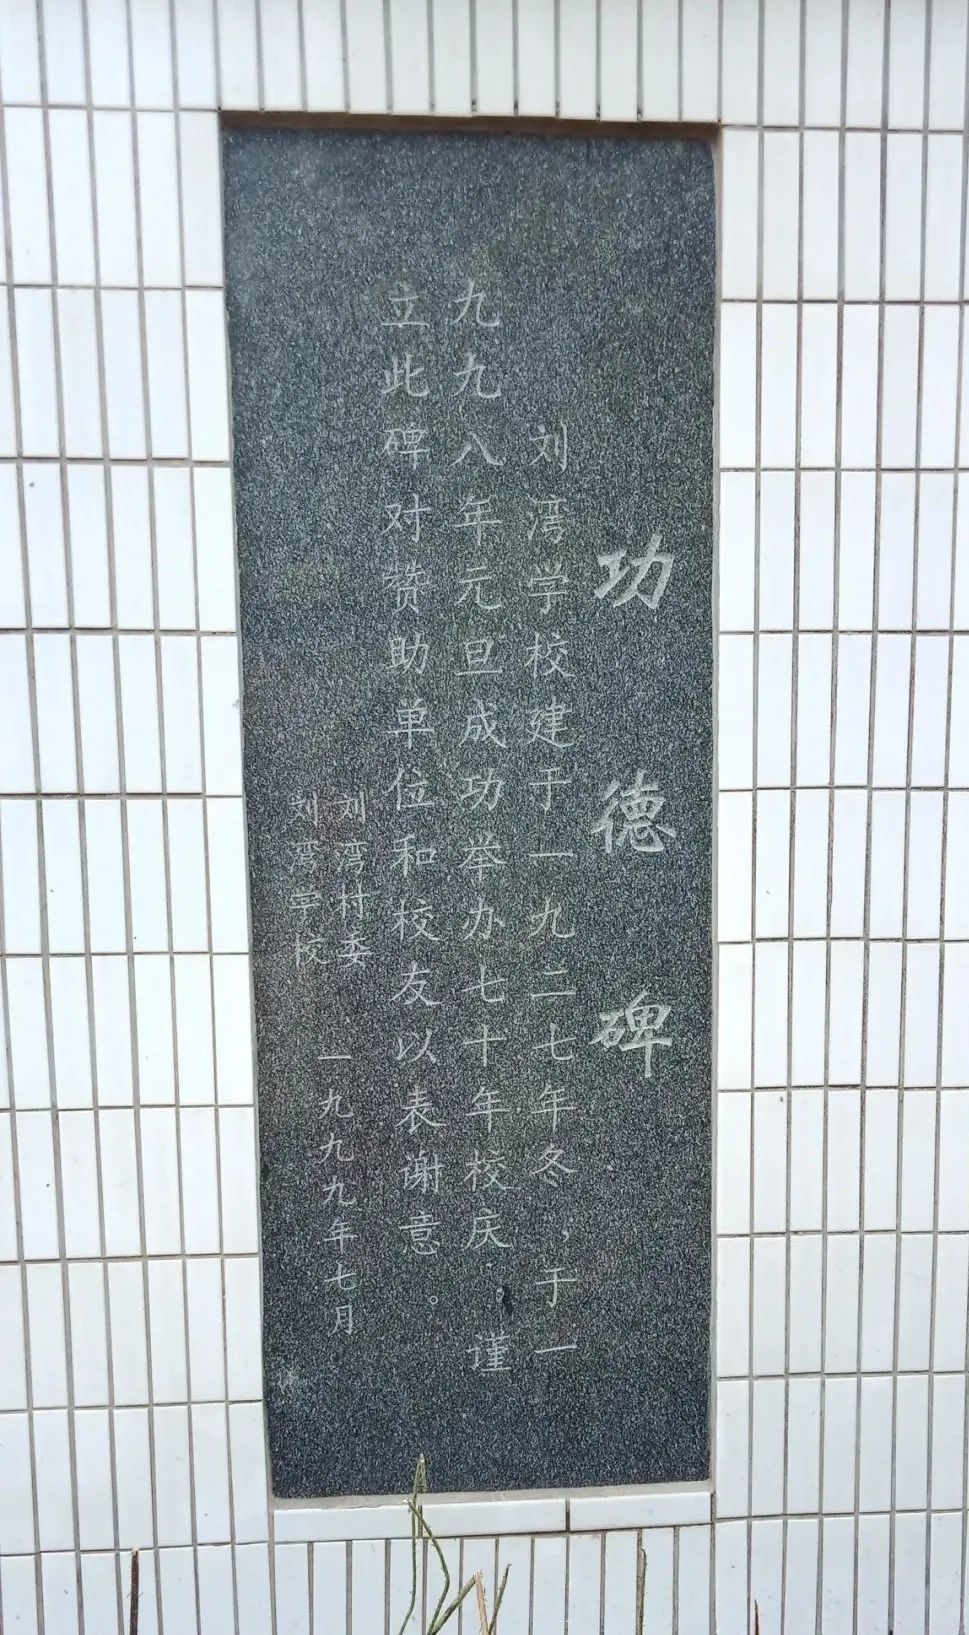 功德碑
刘湾学校建于一九二七年冬，于一
九九八年元旦成功举办七十年校庆，谨
立此碑对赞助单位和校友以表谢意。
刘湾村委
刘湾学校
一九九九年七月